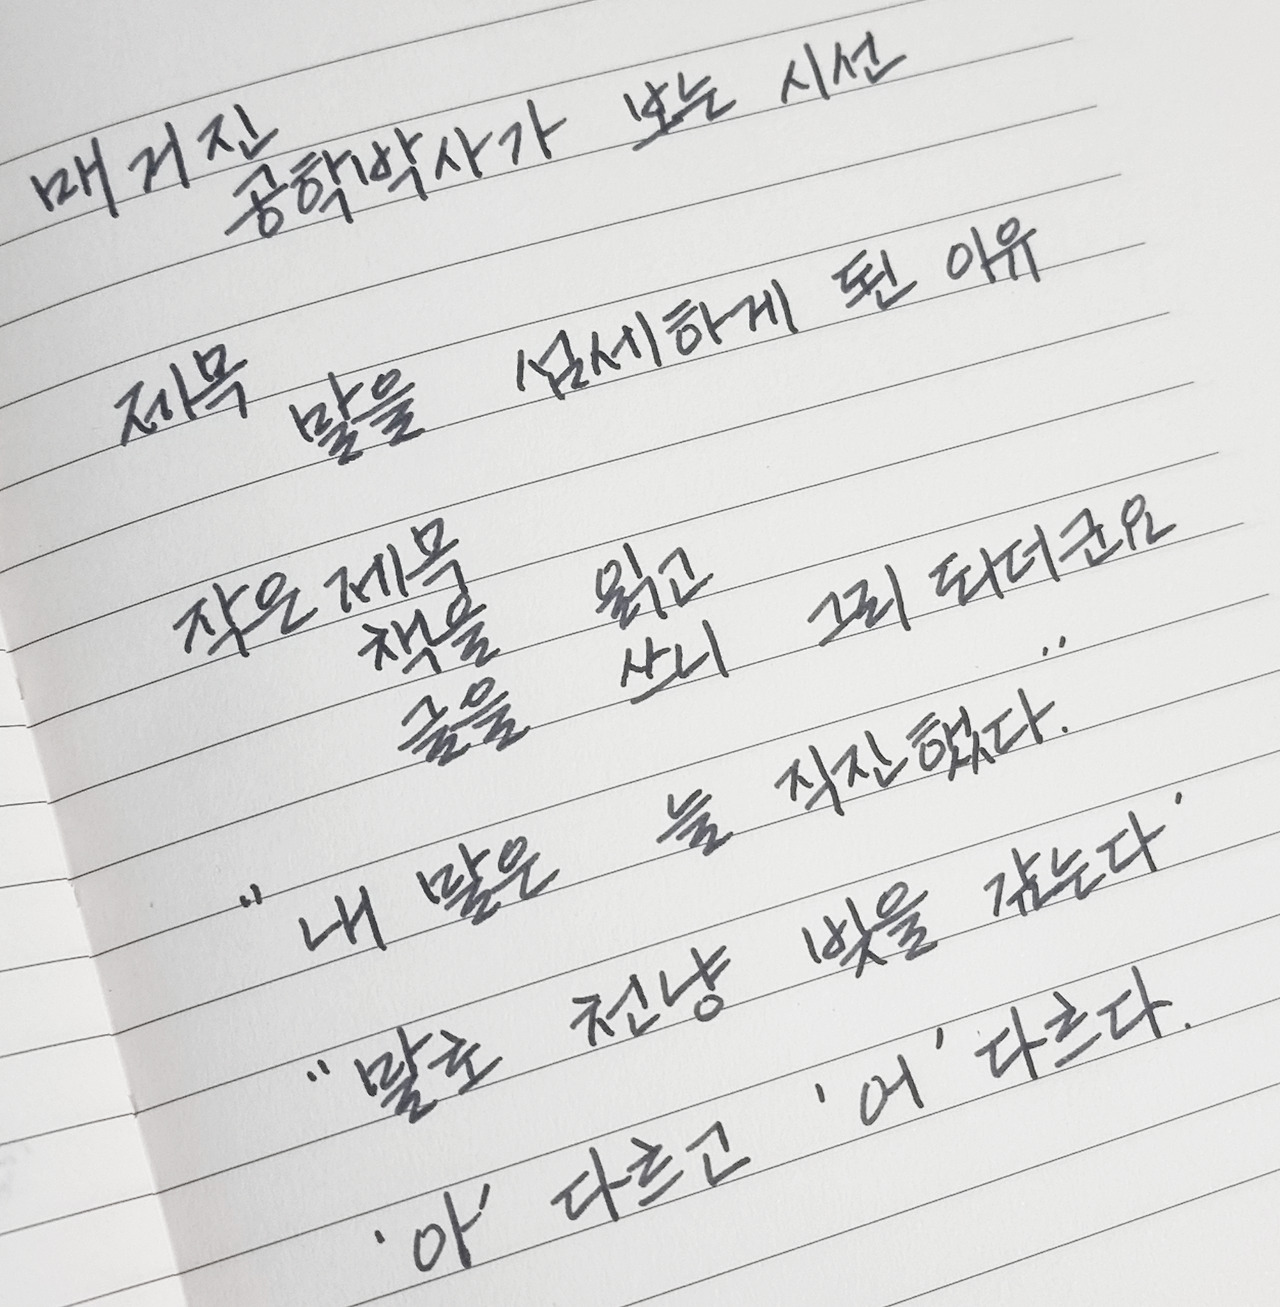 매거진
공학박사가 보는 시선
제목
말을 섬세하게 된 이유
작은 제목
책을 읽고
글을 쓰니 그리 되더군요
"내 말은 늘 직진했다."
"말로 천냥 빚을 갚는다'
'아' 다르고 '어' 다르다.